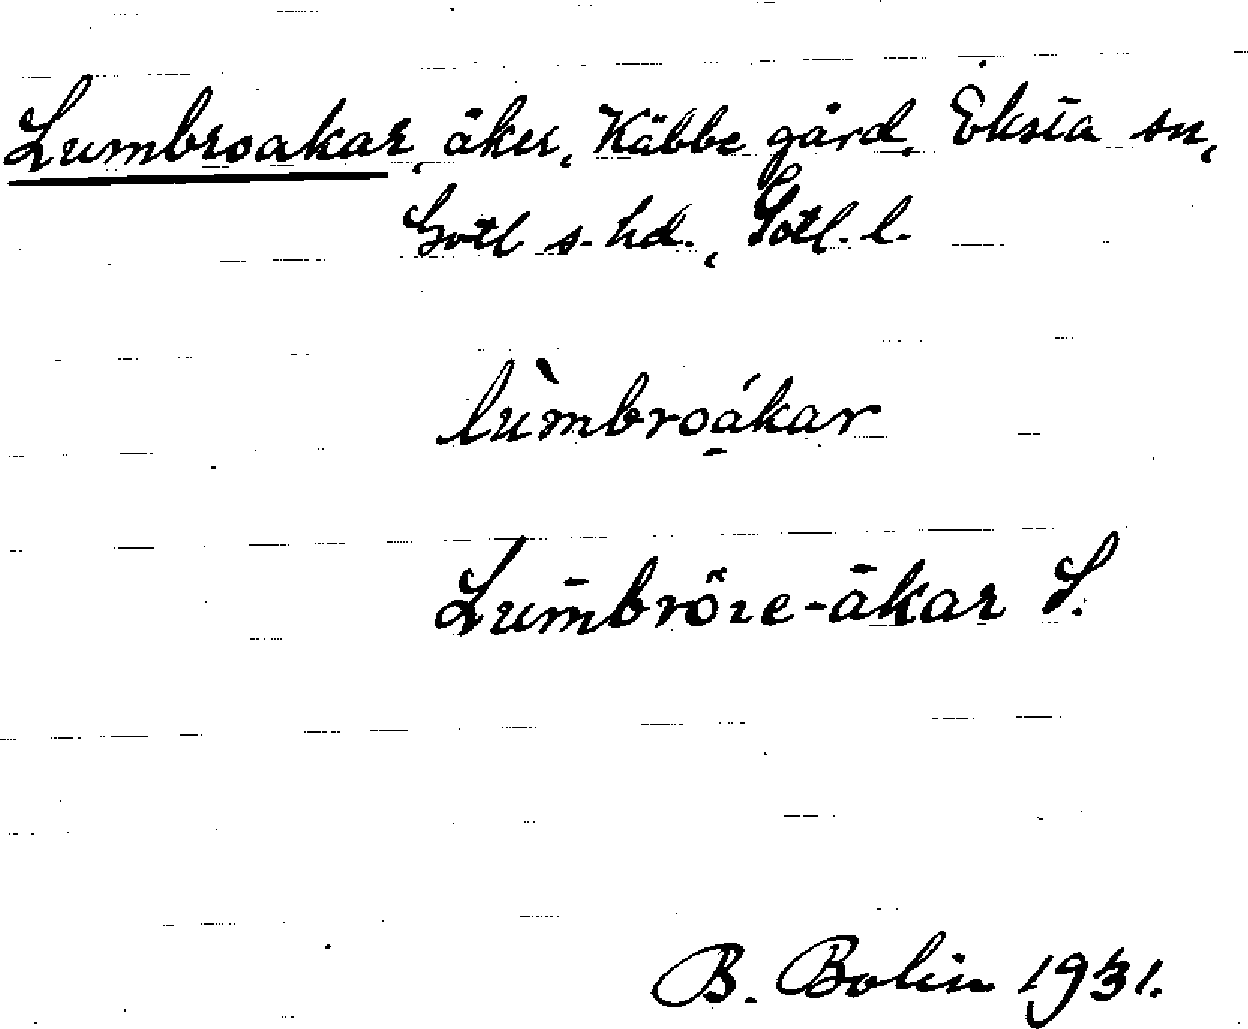 Lumbroakar, åker, Käbbe gård, Eksta sn,
Gotl s. hd., Gotl. l.
lùmbroákar
Lum̄brŏre-ākar S.
B. Bolin 1931.